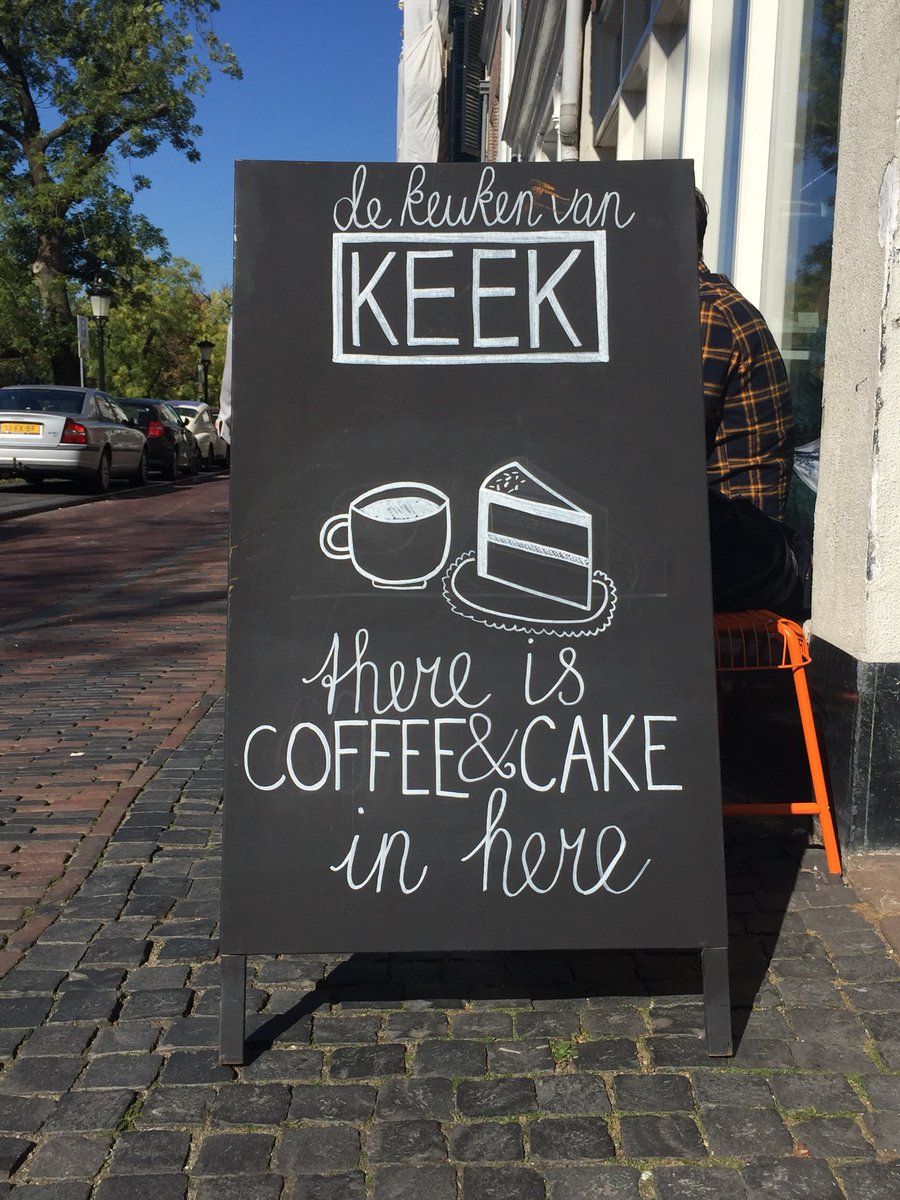 de keuken van
KEEK
there is
COFFEE&CAKE
in here